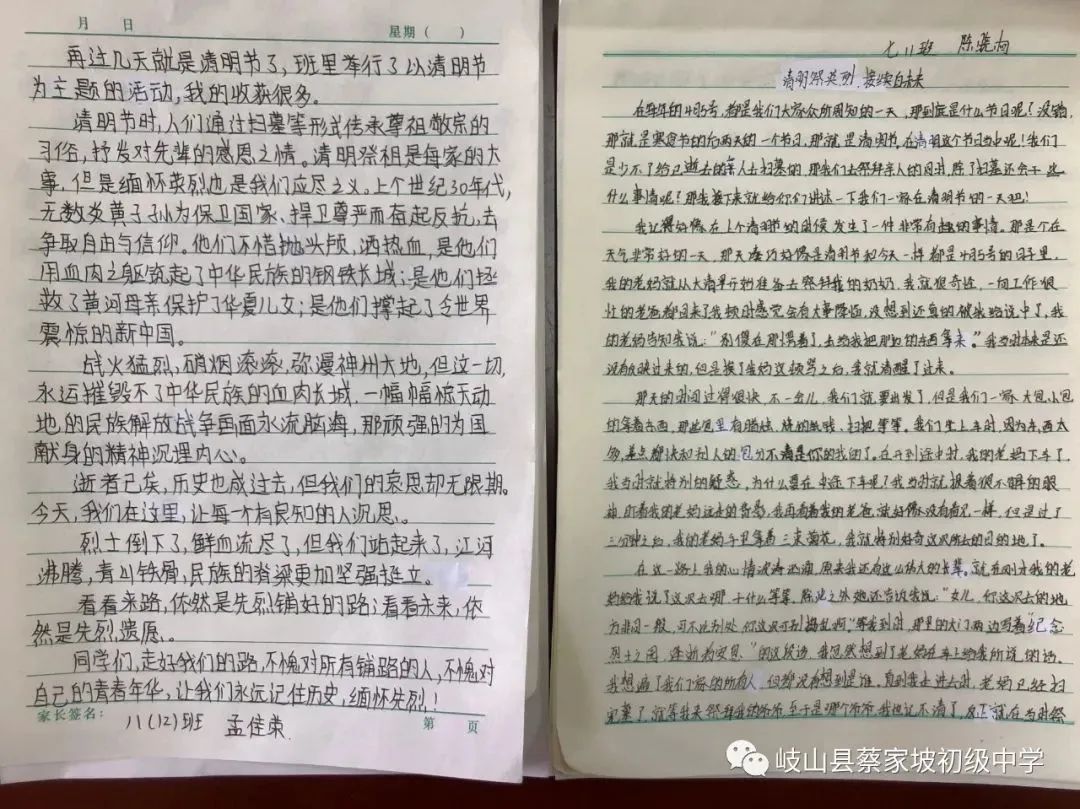 月 日 星期( )
再过几天就是清明节了,班里举行了以清明节
为主题的活动,我的收获很多。
清明节时,人们通过扫墓等形式传承尊祖敬宗的
习俗,抒发对先辈的感恩之情。清明祭祖是每家的大
事,但是缅怀英烈也是我们应尽之义。上个世纪30年代,
无数炎黄子孙为保卫国家、捍卫尊严而奋起反抗,去
争取自由与信仰。他们不惜抛头颅,洒热血,是他们
用血肉之躯筑起了中华民族的钢铁长城;是他们拯
救了黄河母亲保护了华夏儿女;是他们撑起了令世界
震惊的新中国。
战火猛烈,硝烟滚滚,弥漫神州大地,但这一切,
永远摧毁不了中华民族的血肉长城,一幅幅惊天动
地的民族解放战争画面永流脑海,那顽强的为国
献身的精神沉埋内心。
逝者已矣,历史也成过去,但我们的哀思却无限期。
今天,我们在这里,让每一个有良知的人沉思。
烈士倒下了,鲜血流尽了,但我们站起来了,江河
沸腾,青川铁骨,民族的脊梁更加坚强挺立。
看看来路,依然是先烈铺好的路;看看未来,依
然是先烈遗愿。
同学们,走好我们的路,不愧对所有铺路的人,不愧对
自己的青春年华,让我们永远记住历史,缅怀先烈!
家长签名: 第 页
八(12)班 孟佳荣
七八班 陈晓
清明祭英烈,接续向未来
在每年的4月5号,都是我们大家众所周知的一天,那到底是什么节日呢?没错,
那就是寒食节的后两天的一个节日,那就是清明节,在清明这个节日当中呢!我们
是少不了给已逝去的亲人去扫墓的,那我们去祭拜亲人的同时,除了扫墓还会干些
什么事情呢?那我接下来就给你们讲述一下我们一家在清明节的一天吧!
我记得好像在上个清明节的时候发生了一件非常有趣的事情。那是个在
天气非常好的一天,那天凑巧好像是清明节和今天一样都是4月5号的日子里,
我的老妈就从大清早开始准备去祭拜我的奶奶,我就很奇怪,一向工作很
忙的老爸都回来了我顿时感觉会有大事降临,没想到还真的被我给说中了,我
的老妈告知我说:"别傻在那愣着了,去给我把那边的东西拿来。"我当时本来是还
没有反映过来的,但是挨了我妈这顿骂之后,我就清醒了过来。
那天的时间过得很快,不一会儿,我们就要出发了,但是我们一家大包小包
的拿着东西,那些包里有腊烛、烧的纸钱、扫把等等。我们坐上车时,因为东西太
多,差点都快和别人的包分不清是你的我的了。在开到途中时,我的老妈下车了,
我当时就特别的疑惑,为什么要在半途下车呢?我当时就摸着很不解的眼
神,盯着我的老妈远走的背影,我再看看我的老爸,就好像没有看见一样,但是过了
三分钟之后,我的老妈手里拿着三束菊花,我就特别好奇这次所去的目的地了。
在这一路上我的心情波涛汹涌,原来我还有这么伟大的长辈。就在刚才我的老
妈给我说了这次去哪,干什么等等,除此之外她还告诉我说:"女儿,你这次去的地
方非同一般,可不比别处,你这次可别捣乱啊。"等我到时,那里的大门两边写着"纪念
烈士之园,逢逝为安息"的这段话,我忽然想到了老妈在车上给我所说的话,
我想遍了我们家的所有人,但都没有想到是谁。直到我走进去时,老妈已经扫
完墓了,就等我来祭拜我的爷爷,至于是哪个爷爷,我也记不清了,反正就在当时祭
岐山县蔡家坡初级中学